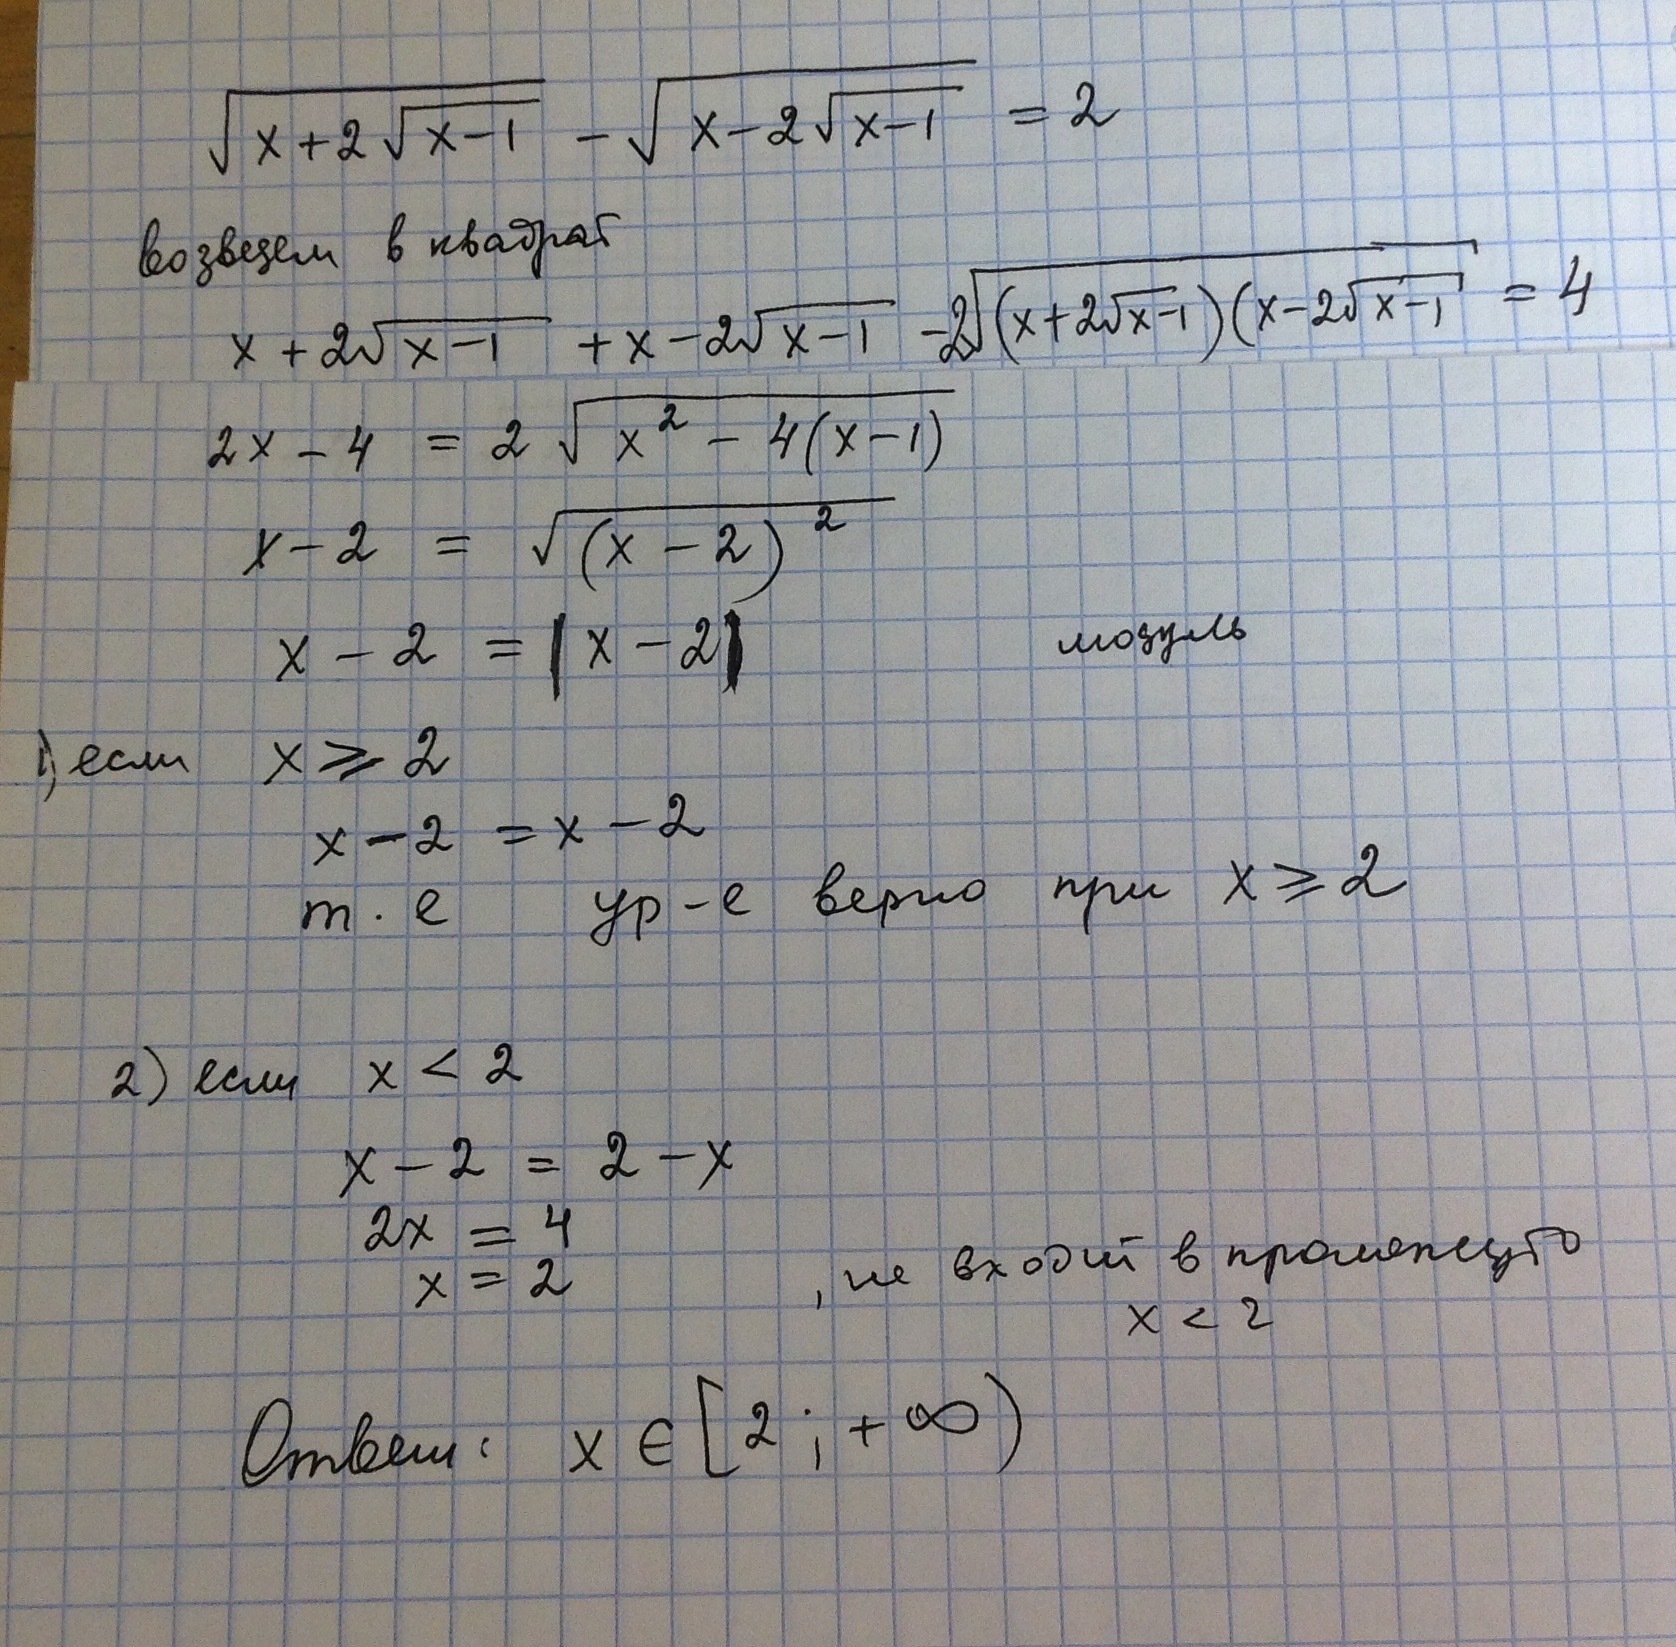 √(x+2√(x-1)) - √(x-2√(x-1)) = 2
возведем в квадрат
x+2√(x-1) +x-2√(x-1) -2√((x+2√x-1)(x-2√(x-1)) = 4
2x-4 = 2√(x²-4(x-1))
x-2 = √((x-2)²)
x-2 = |x-2| модуль
1) если x ⩾ 2
x-2 = x-2
т.е ур-е верно при x ⩾ 2
2) если x < 2
x-2 = 2-x
2x = 4
x = 2 , не входит в промежуто
x < 2
Ответ: x ∈ [2; +∞)